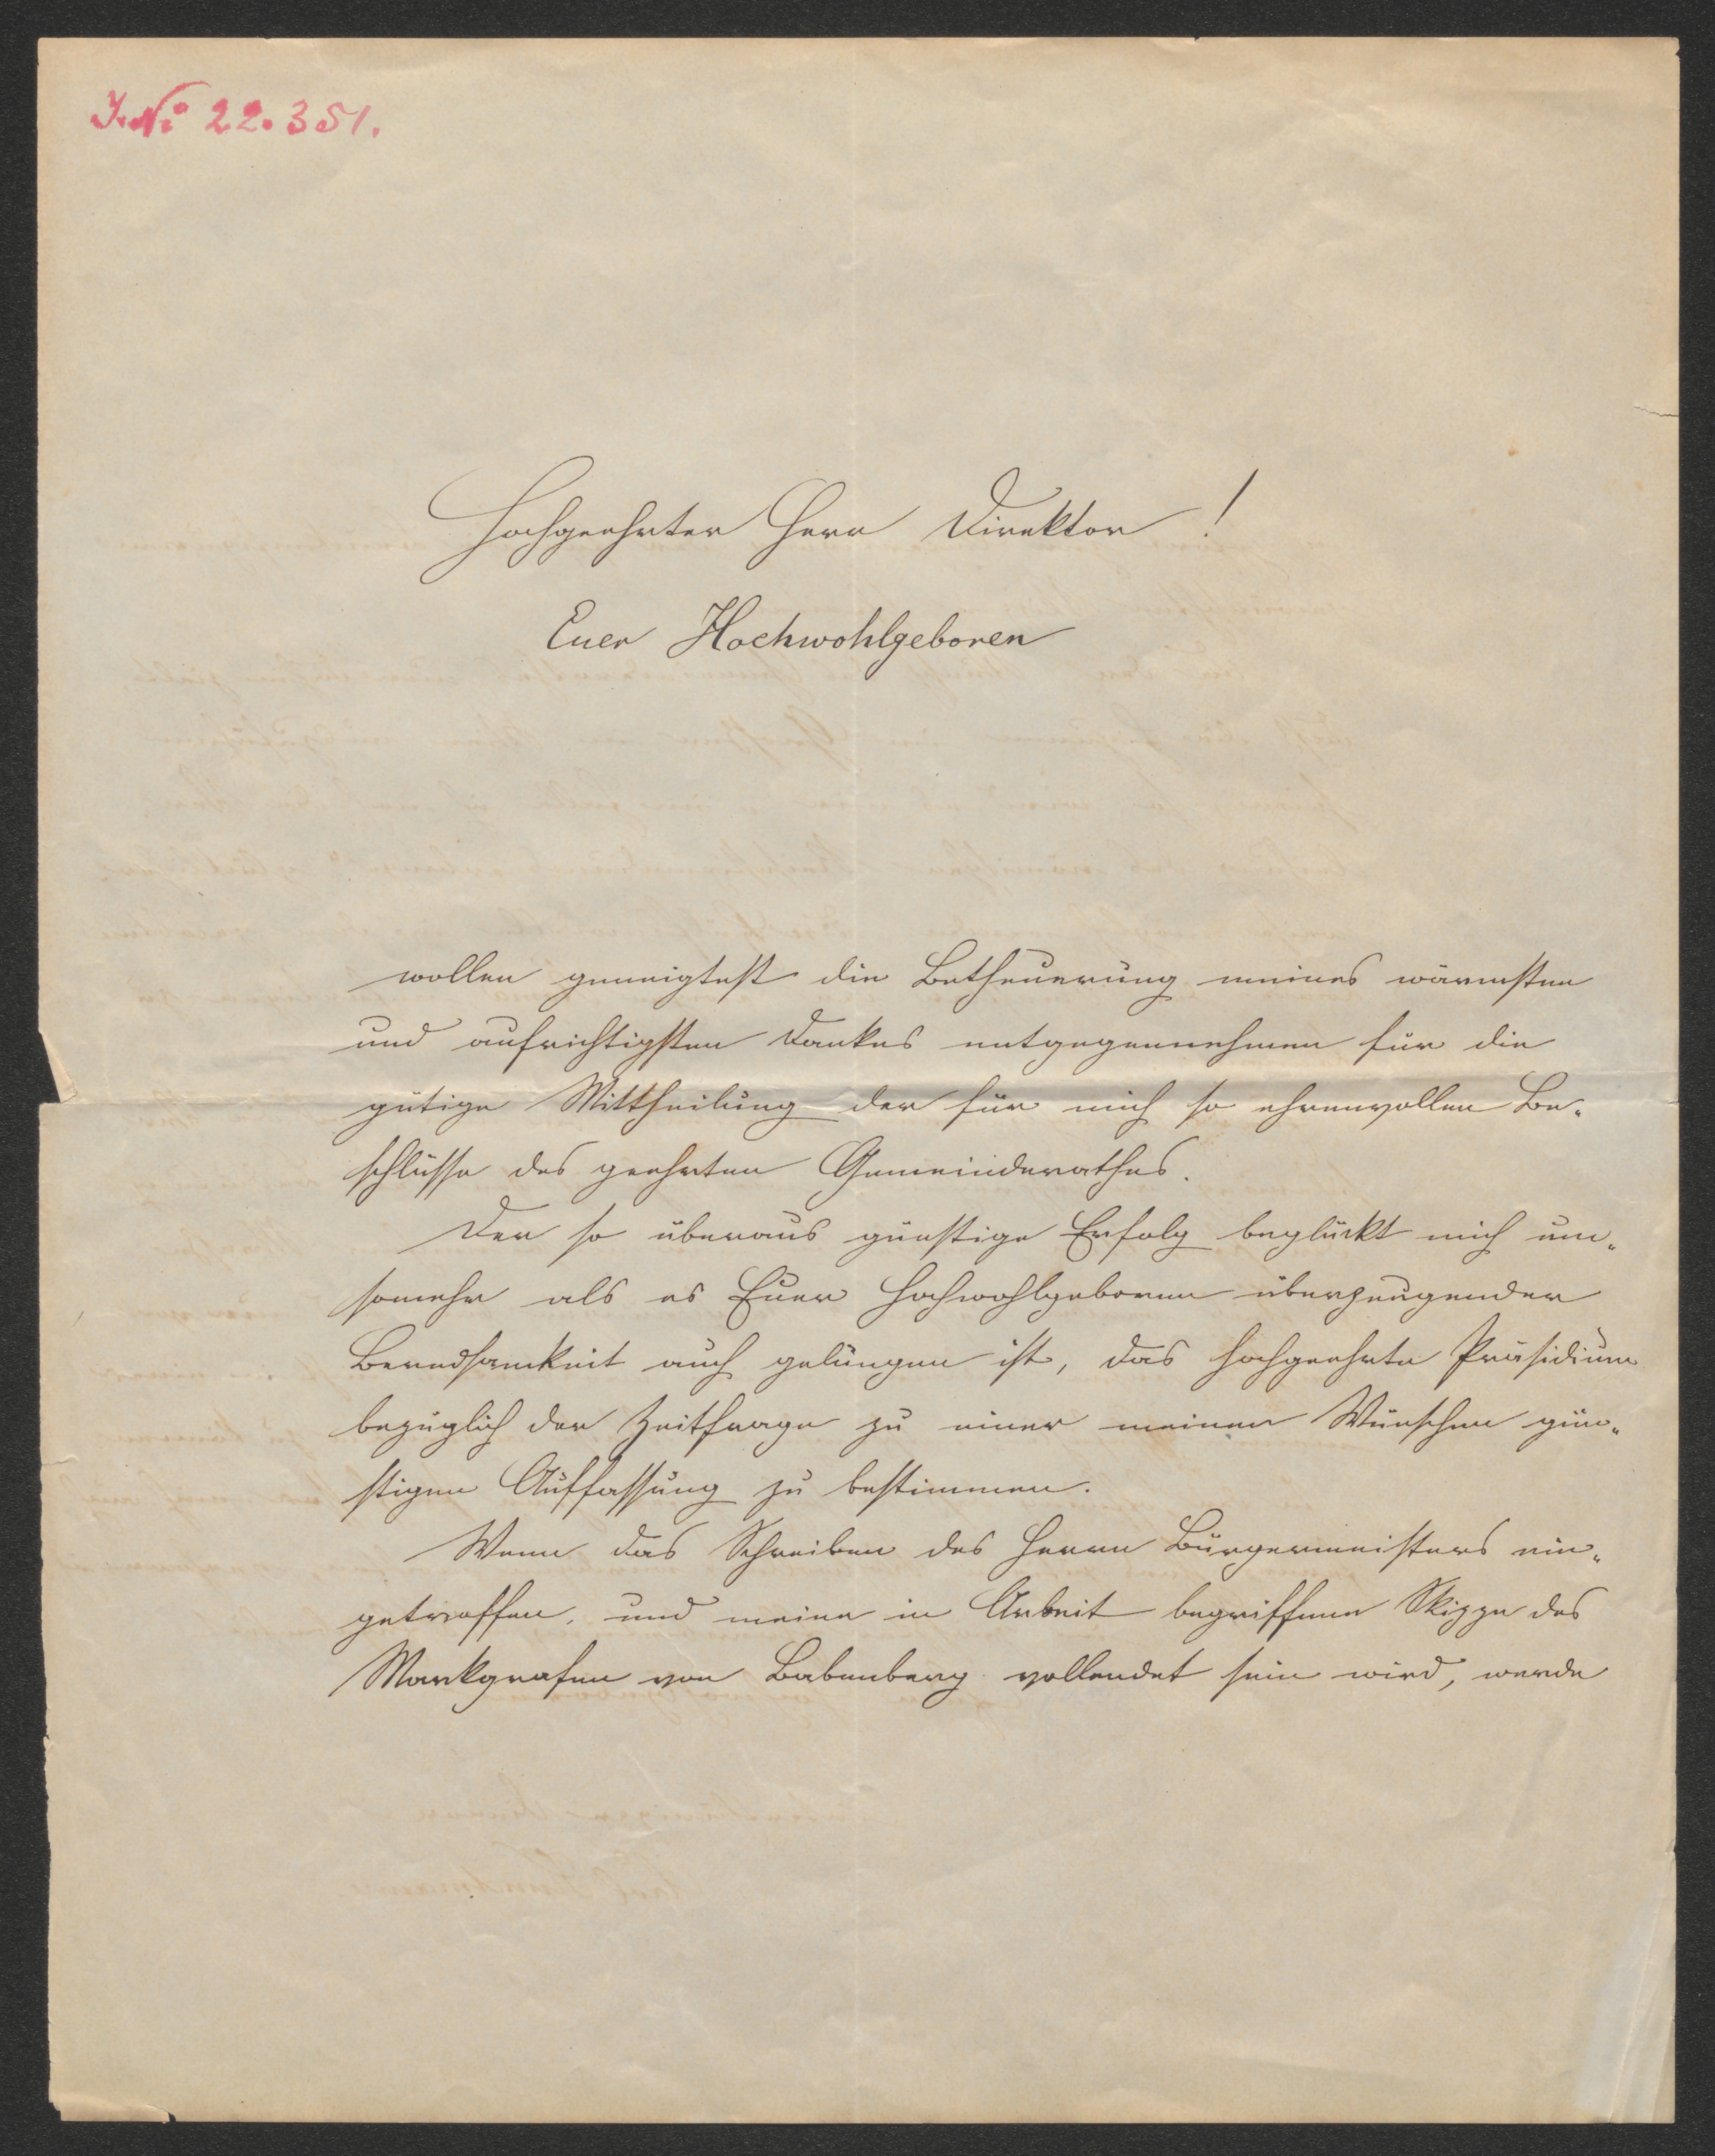 J. N: 22.351.
Hochgeehrter Herr Direktor!
Euer Hochwohlgeboren
wollen geneigtest die Betheuerung meines wärmsten
und aufrichtigsten Dankes entgegennehmen für die
gütige Mittheilung der für mich so ehrenvollen Be-
schlüsse des geehrten Gemeinderathes.
Der so überaus günstige Erfolg beglückt mich um-
somehr als es Euer Hochwohlgeboren überzeugender
Beredsamkeit auch gelungen ist, das hochgeehrte Präsidium
bezüglich der Zeitfrage zu einer meinen Wünschen gün-
stigen Auffassung zu bestimmen.
Wenn das Schreiben des Herrn Bürgermeisters ein-
getroffen, und meine in Arbeit begriffene Skizze des
Markgrafen von Babenberg vollendet sein wird, werde